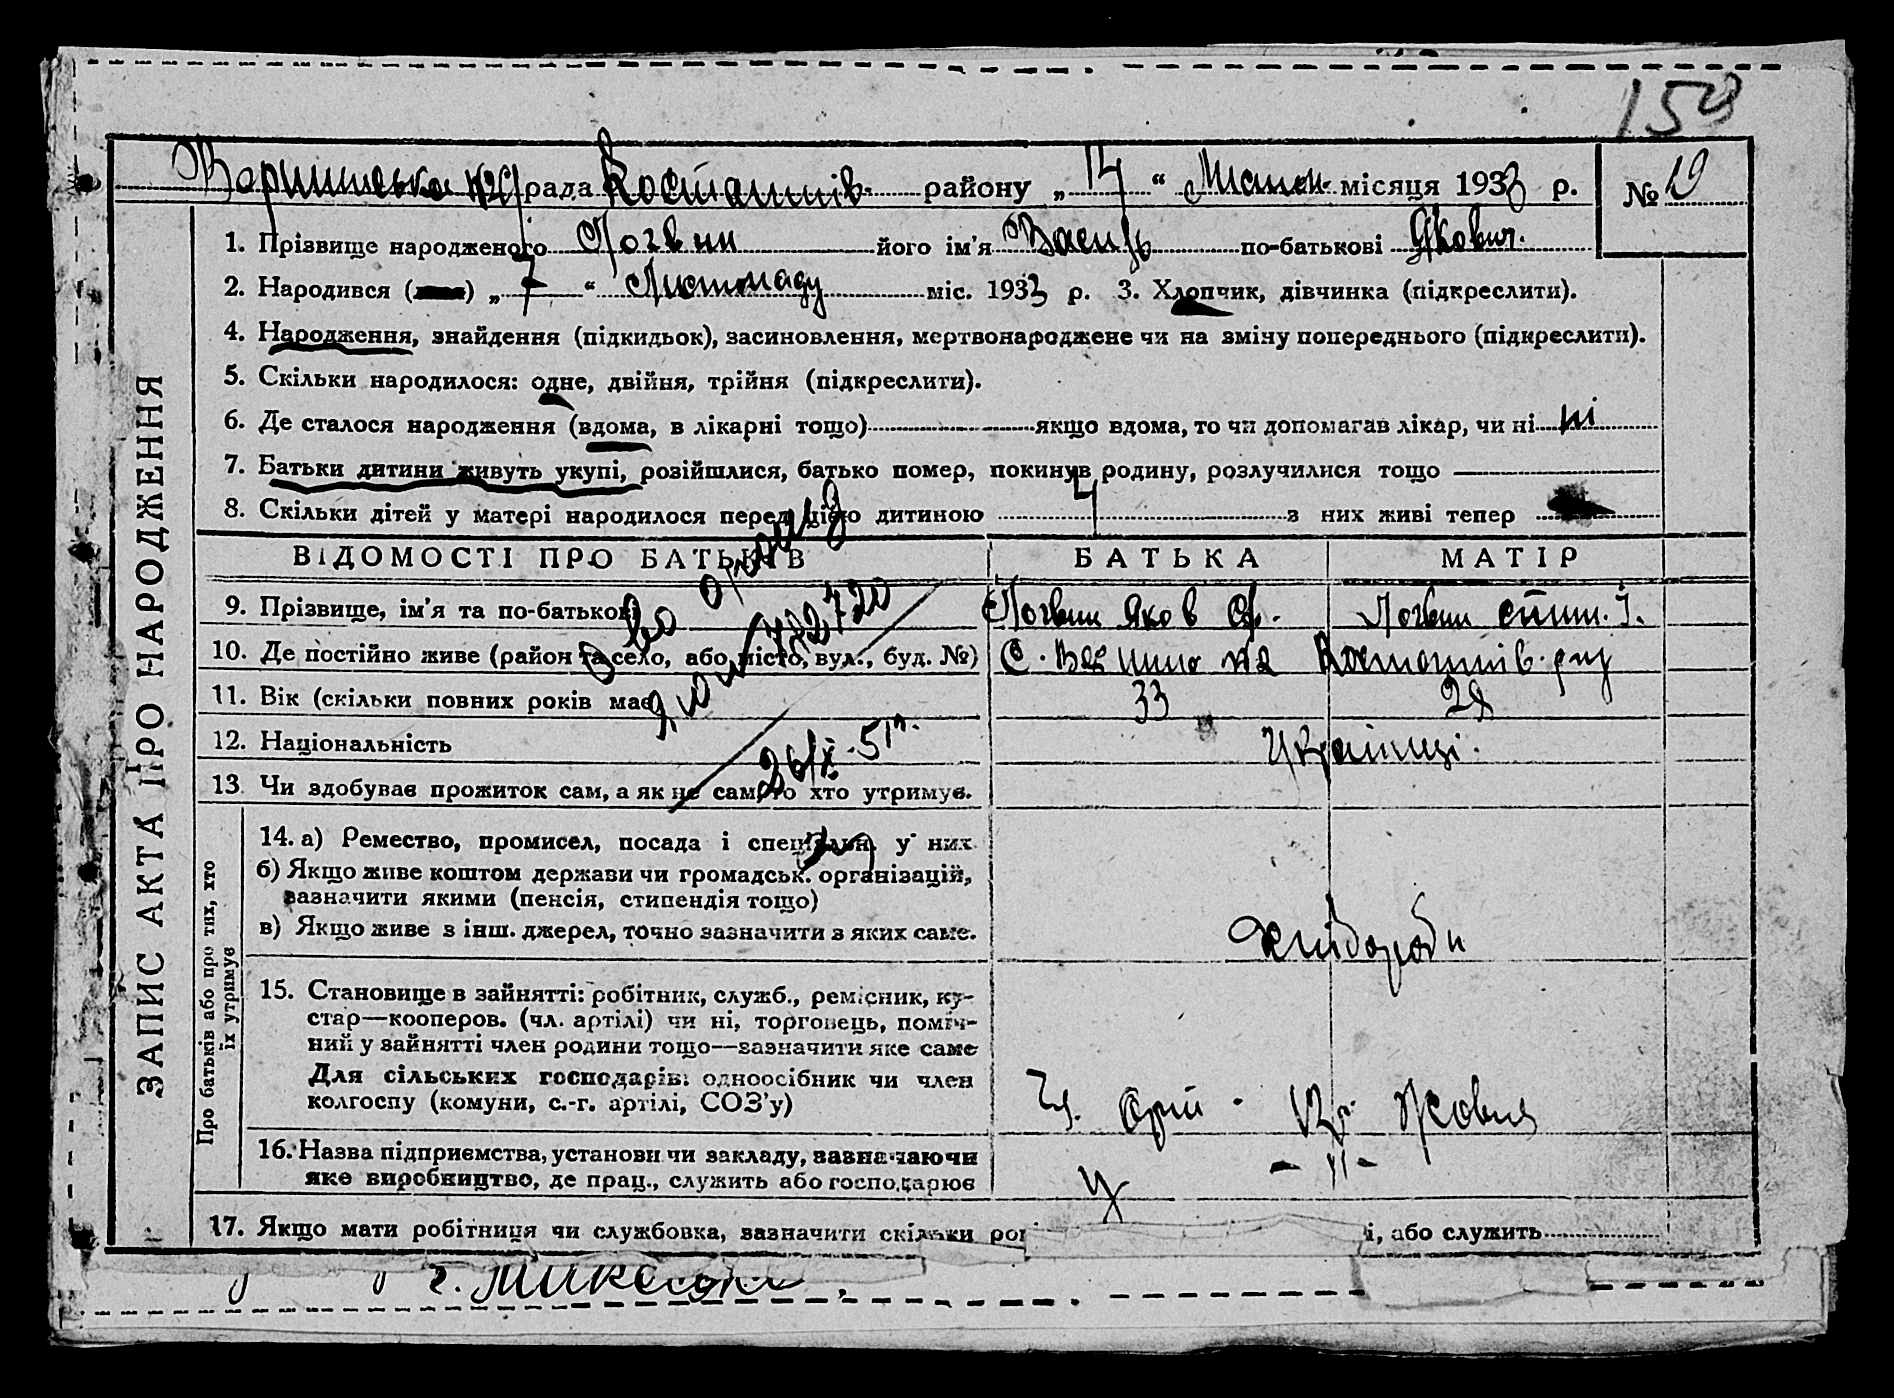 153
рада району „ 14 “ місяця 1933 р. № 19
1. Прізвище народженого Логвин його ім'я Василь по-батькові Якович.
2. Народився ( ) „ 7 “ Листопаду міс. 1933 р. 3. Хлопчик, дівчинка (підкреслити).
4. Народження, знайдення (підкидьок), засиновлення, мертвонароджене чи на зміну попереднього (підкреслити).
5. Скільки народилося: одне, двійня, трійня (підкреслити).
6. Де сталося народження (вдома, в лікарні тощо) якщо вдома, то чи допомагав лікар, чи ні ні
7. Батьки дитини живуть укупі, розійшлися, батько помер, покинув родину, розлучилися тощо
8. Скільки дітей у матері народилося перед цією дитиною 4 з них живі тепер
ВІДОМОСТІ ПРО БАТЬКІВ БАТЬКА МАТІР
9. Прізвище, ім'я та по-батькові Логвин Яков Логвин
10. Де постійно живе (район та село, або місто, вул., буд. №) С.
11. Вік (скільки повних років має 33 28
12. Національність Українці.
13 Чи здобуває прожиток сам, а як не сам, то хто утримує.
26/X-51 г.
14. а) Ремество, промисел, посада і спеціяльн. у них
б) Якщо живе коштом держави чи громадськ. організацій,
зазначити якими (пенсія, стипендія тощо)
в) Якщо живе з інш. джерел, точно зазначити з яких саме.
хлібороби
15. Становище в зайнятті: робітник, служб., ремісник, ку-
стар—кооперов. (чл. артілі) чи ні, торговець, поміч-
ний у зайнятті член родини тощо—зазначити яке саме
Для сільських господарів: одноосібник чи член
колгоспу (комуни, с.-г. артілі, СОЗ'у)
16. Назва підприємства, установи чи закладу, зазначаючи - 11 -
яке виробництво, де прац., служить або господарює
17. Якщо мати робітниця чи службовка, зазначити скільки рокі і, або служить
ЗАПИС АКТА ПРО НАРОДЖЕННЯ
Про батьків або про тих, хто
їх утримує